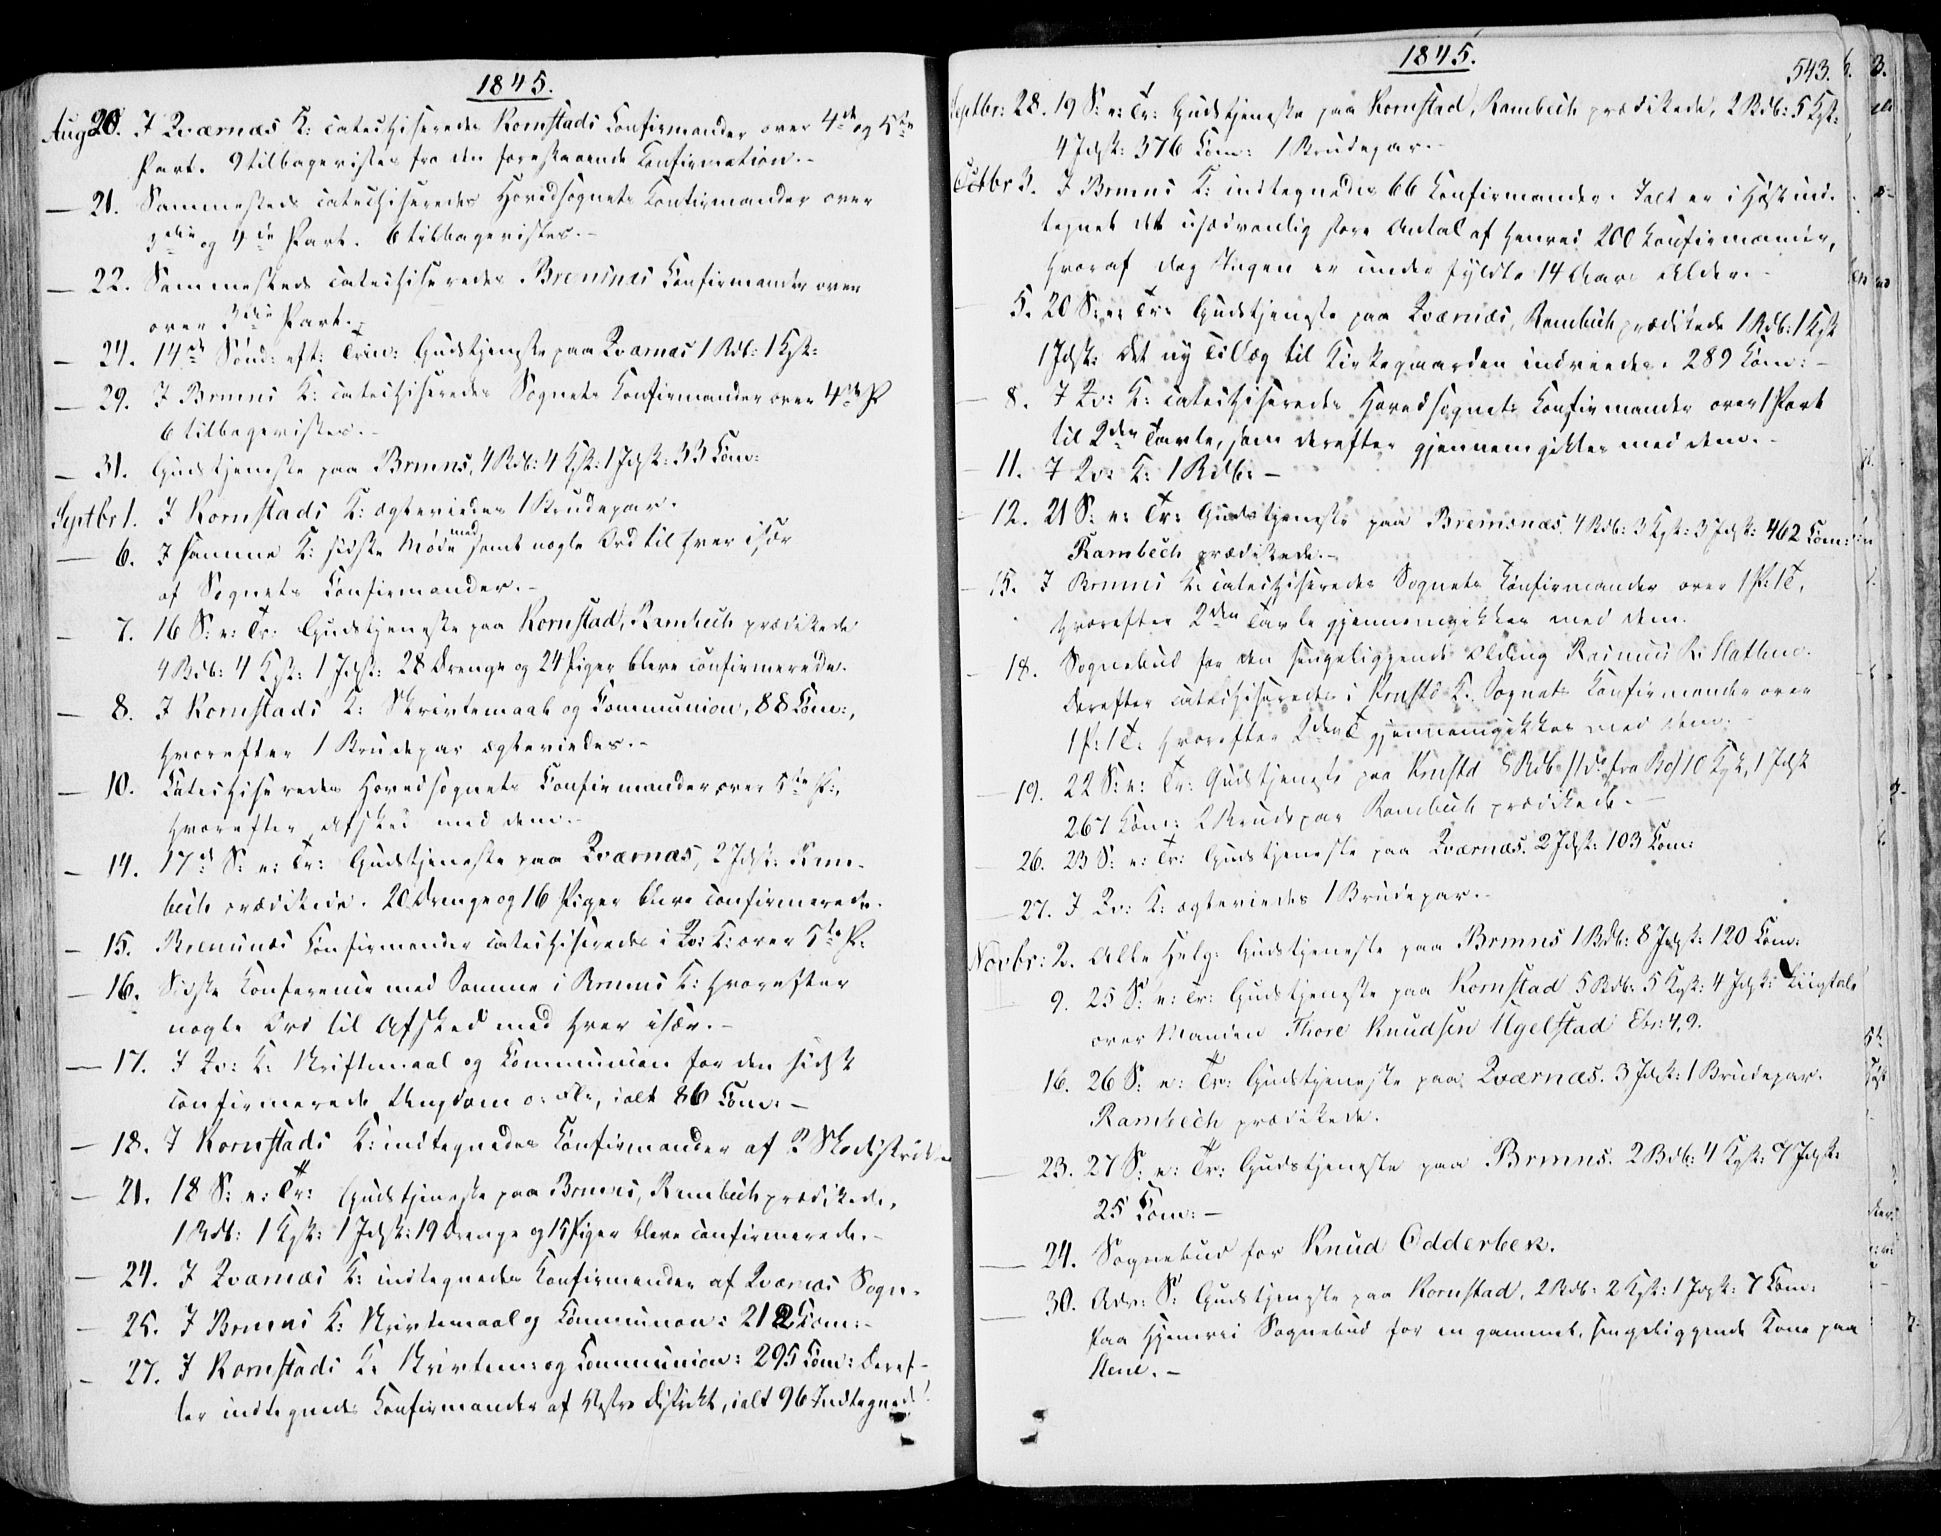 1845.
Aug 20. I Qværnæs K: catechiseredes Kornstads Confirmander over 4de og 5te
Part. 9 tilbagevistes fra den forestaaende Confirmation. -
- 21. Sammesteds catechiseredes Hovedsognets Confirmander over
3die og 4de Part. 6 tilbagevistes. -
- 22. Sammesteds catechiseredes Bremsnæs Confirmander over
over 3die Part. -
- 24. 14de Sønd: eft: Trin: Gudstjeneste paa Qværnæs 1 Rdb: 1 Kgk:
- 29. I Brmns K: catechiseredes Sognets Confirmander over 4de P
6 tilbagevistes. -
- 31. Gudstjeneste paa Brmns, 4 Rdb: 4 Kgk: 1 Jdsk: 33 Com:
Septbr 1. I Kornstads K: ægteviedes 1 Brudepar.
- 6. I samme K: sidste Møde med samt nogle Ord til hver især
af Sognets Confirmander. -
- 7. 16 S: e: Tr: Gudstjeneste paa Kornstad, Rambech prædikede
4 Rdb: 4 Kgk: 1 Jdsk: 28 Drenge og 24 Piger bleve confirmerede.
- 8. I Kornstads K: Skriftemaal og Communion, 88 Com:,
hvorefter 1 Brudepar ægteviedes. -
- 10. Catechiseredes Hovedsognets Confirmander over 5te P:,
hvorefter Afsked med dem. -
- 14. 17de S: e: Tr: Gudstjeneste paa Qværnæs, 2 Jdsk: Ram-
bech prædikede. 20 Drenge og 16 Piger bleve confirmerede.
- 15. Bremsnæs Confirmander catechiseredes i Qv: K: over 5te P:
- 16. Sidste Conference med Samme i Brmns K: hvorefter
nogle Ord til Afsked med hver især. -
- 17. I Qv: K: Skriftemaal og Communion for den sidst
confirmerede Ungdom o: Fl:, ialt 86 Com: -
- 18. I Kornstads K: indtegnedes Confirmander af 2 Skoledistrikter
- 21. 18 S: e: Tr: Gudstjeneste paa Brmns, Rambech prædikede,
1 Rdb: 1 Kgk: 1 Jdsk: 19 Drenge og 15 Piger bleve confirmerede. -
- 24. I Qværnæs K: indtegnedes Confirmander af Qværnæs Sogn.
- 25. I Brmns K: Skriftemaal og Communion: 212 Com: -
- 27. I Kornstads K: Skriftem: og Communion: 295 Com: Deref-
ter indtegnedes Confirmander af Vestre Distrikt, ialt 96 Indtegnede!
1845.
543.
Septbr: 28. 19 S: e: Tr: Gudstjeneste paa Kornstad, Rambech prædikede, 2 Rdb: 5 Kgk:
4 Jdsk: 376 Com: 1 Brudepar. -
Octbr 3. I Brmns K: indtegnedes 66 Confirmander. Ialt er i Høst ind-
tegnet det usædvanlig store Antal af henved 200 Confirmander,
hvoraf dog Ingen er under fyldte 14 Aars Alder. -
- 5. 20 S: e: Tr: Gudstjeneste paa Qværnæs, Rambech prædikede 1 Rdb: 1 Kgk
1 Jdsk: Det ny Tillæg til Kirkegaarden indviedes. 289 Com: -
- 8. I Qv: K: catechiseredes Hovedsognets Confirmander over 1 Part
til 2den Tavle, som derefter gjennemgikkes med dem. -
- 11. I Qv: K: 1 Rdb: -
- 12. 21 S: e: Tr: Gudstjeneste paa Bremsnæs, 4 Rdb: 3 Kgk: 3 Jdsk: 462 Com:
Rambech prædikede. -
- 15. I Brmns K: catechiseredes Sognets Confirmander over 1 P: 1 T,
hvorefter 2den Tavle gjennemgikkes med dem.
- 18. Sognebud for den sengeliggende Olding Rasmus R. Slatlem.
Derefter catechiseredes i Krnstd K. Sognets Confirmander over
1 P: 1 T: hvorefter 2den T gjennemgikkes med dem.
- 19. 22 S: e: Tr: Gudstjeneste paa Krnstd 8 Rdb 10 Kgk, 1 Jdsk
267 Com: 2 Brudepar Rambech prædikede. -
- 26. 23 S: e: Tr: Gudstjeneste paa Qværnæs. 2 Jdsk: 103 Com:
- 27. I Qv: K: ægteviedes 1 Brudepar. -
Novbr: 2. Alle Helg: Gudstjeneste paa Brmns 1 Rdb: 8 Jdsk: 120 Com:
9. 25 S: e: Tr: Gudstjeneste paa Kornstad 5 Rdb: 5 Kgk: 4 Jdsk: Liigtale
over Manden Thore Knudsen Ugelstad Ebr: 4, 9.
16. 26 S: e: Tr: Gudstjeneste paa Qværnæs. 3 Jdsk: 1 Brudepar.
Rambech prædikede.
- 23. 27 S: e: Tr: Gudstjeneste paa Brmns. 2 Rdb: 4 Kgk: 7 Jdsk:
25 Com: -
- 24. Sognebud for Knud Odderbek.
- 30. Adv: S: Gudstjeneste paa Kornstad, 2 Rdb: 2 Kgk: 1 Jdsk: 7 Com:
Paa Hjemvei Sognebud for en gammel, sengeliggende Kone paa
Stene. -